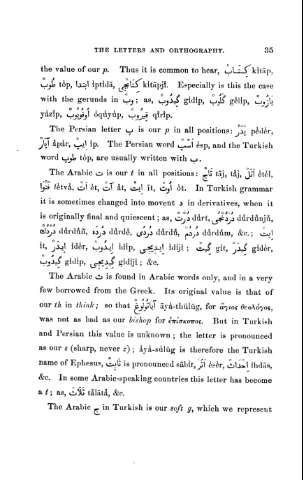 THE LETTERS AND ORTHOGRAPHY. 35
the value of our p. Thus it is common to hear, كتاب kĭtāp,
طوب tóp, ابتدا ĭptĭdā, كتابجى kĭtāpjĭ. Especially is this the case
with the gerunds in وب; as, گيدوب gĭdĭp, گلوب gělĭp, يازوب
yāzĭp, اوقويوب óqúyúp, قيروب qĭrĭp.
The Persian letter پ is our p in all positions: پدر pědêr,
āpār, ايپ ĭp. The Persian word اسپ ěsp, and the Turkish
word طوپ tóp, are usually written with پ.
The Arabic ت is our t in all positions: تاج tāj, tāj, اتل ětěl,
fêtvā, ات ět, آت āt, ايت ĭt, اوت ót. In Turkish grammar
it is sometimes changed into movent د in derivatives, when it
is originally final and quiescent; as, درت dúrt, dúrdúnjú,
dúrdúñ, درده dúrdě, دردى dúrdú, دردم dúrdúm, &c.; ايت
ĭt, ايدر ĭděr, ايدوب ĭdĭp, ايديجى ĭdĭjĭ; گيت gĭt, گيدر gĭděr,
گيدوب gĭdĭp, گيديجى gĭdĭjĭ; &c.
The Arabic ث is found in Arabic words only, and in a very
few borrowed from the Greek. Its original value is that of
our th in think; so that āyā-thúlúg, for ἅγιος θεολόγος,
was not as bad as our bishop for ἐπίσκοπος. But in Turkish
and Persian this value is unknown; the letter is pronounced
as our s (sharp, never z); āyā-súlúg is therefore the Turkish
name of Ephesus, ثابت is pronounced sābĭt, اثر ěsěr, احداث ĭhdās,
&c. In some Arabic-speaking countries this letter has become
a t; as, ثلاثة tālātā, &c.
The Arabic ج in Turkish is our soft g, which we represent